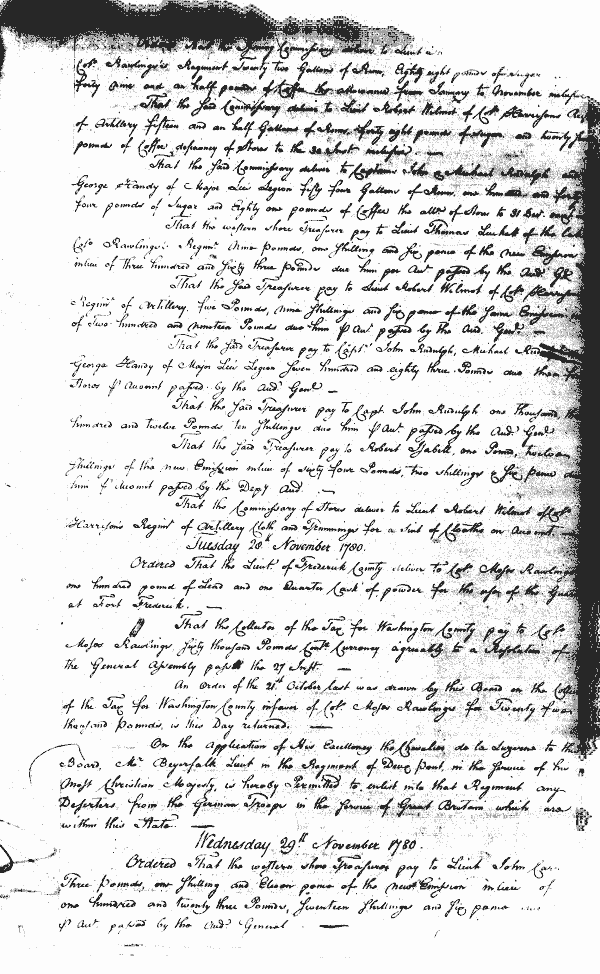 Ordered That the Issuing Commissary deliver to Lieut
Colo. Rawlings's Regiment Twenty two Gallons of Rum, Eighty eight pounds of sugar
forty nine and an half pounds of Coffee the allowance from January to November
That the said Commissary deliver to Lieut Robert Wilmot of Colo. Harrisons
of Artillery fifteen and an half Gallons of Rum, forty eight pounds of sugar and twenty
pounds of Coffee deficiency of Stores to the
That the said Commissary deliver to Captains John & Michael Rudulph and
George Handy of Major Lee's Legion fifty four Gallons of Rum, one hundred and forty
four pounds of Sugar and Eighty one pounds of Coffee the allce. of Stores to 31 Decr.
That the western shore Treasurer pay to Lieut Thomas Luckett of the late
Colo. Rawlings's Regimt. Nine Pounds, one Shilling and Six pence of the new Emission
in lieu of three hundred and sixty three Pounds due him per Act. passed by the Audr. Gl.
That the said Treasurer pay to Lieut Robert Wilmot of Colo. Harrisons
Regimt. of Artillery, five Pounds, nine Shillings and six pence of the same Emission
of Two hundred and nineteen Pounds due him P Act. passed by the Aud. Genl. —
That the said Treasurer pay to Capts. John Rudulph, Michael
George Handy of Major Lee's Legion Seven hundred and eighty three Pounds due them for
Stores P Account passed by the Audr. Genl. —
That the said Treasurer pay to Capt. John Rudulph one thousand
hundred and twelve Pounds ten shillings due him P Act. passed by the Aud. Genl.
That the said Treasurer pay to Robert Isabell, one Pound, twelve
shillings of the new Emission in lieu of sixty four Pounds, two shillings & Six pence due
him P Account passed by the Depy Aud. —
That the Commissary of Stores deliver to Lieut Robert Wilmot of Colo.
Harrison's Regimt. of Artillery Cloth and Trimmings for a Suit of Cloaths on Account. —
Tuesday 28th November 1780.
Ordered That the Lieut. of Frederick County deliver to Colo. Moses Rawlings
one hundred pound of Lead and one Quarter Cask of powder for the use of the Guard
at Fort Frederick. —
That the Collector of the Tax for Washington County pay to Colo.
Moses Rawlings Sixty thousand Pounds Contl. Currency agreeably to a Resolution of
the General Assembly passed the 27 Inst. —
An Order of the 21st October last was drawn by this Board on the
of the Tax for Washington County in favor of Colo. Moses Rawlings for Twenty
thousand Pounds, is this Day returned. —
On the Application of His Excellency the Chevalier de la Luzerne to this
Board, Mr. Beyerfalk Lieut in the Regiment of Deux Pont, in the Service of his
Most Christian Majesty, is hereby Permitted to enlist into that Regiment any
Deserters from the German Troops in the Service of Great Britain which are
within this State. —
Wednesday 29th November 1780.
Ordered That the western shore Treasurer pay to Lieut John
Three Pounds, one Shilling and Eleven pence of the new Emission in lieu of
one hundred and twenty three Pounds, Seventeen Shillings and Six pence
P Act. passed by the Audr. General —